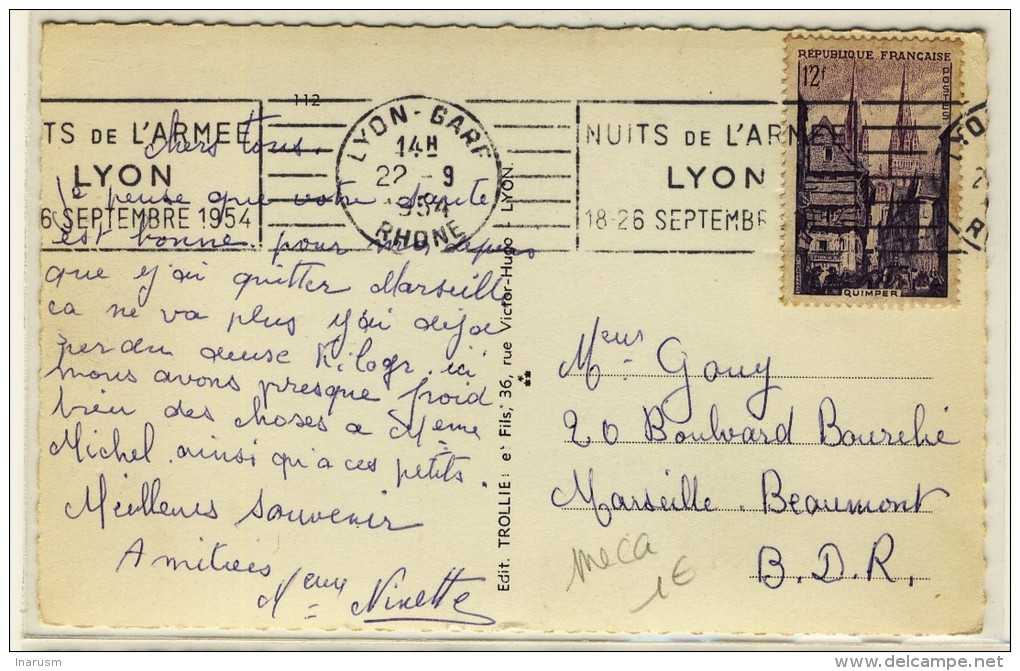 112
TS DE L'ARMEE
LYON
6 SEPTEMBRE 1954
LYON-GARE
14H
22-9
1954
RHONE
NUITS DE L'ARMEE
LYON
18-26 SEPTEMBR
RÉPUBLIQUE FRANÇAISE
12F
POSTES
QUIMPER
chers tous.
Je pense que votre santé
est bonne. pour moi, depuis
que j'ai quitter Marseille
ca ne va plus j'ai deja
perdu deuse Kilogr. ici
nous avons presque froid
bien des choses a Meme
Michel. ainsi qu'a ces petits.
Meilleurs Souvenir
Amitiés
Meur Ninette
Edit. TROLLIE et Fils, 36, rue Victor-Hugo LYON.
Meur Gouy
20 Boulvard Bourelié
Marseille. Beaumont
B.D.R.
meca
1€
© Inarusm
delcampe.net